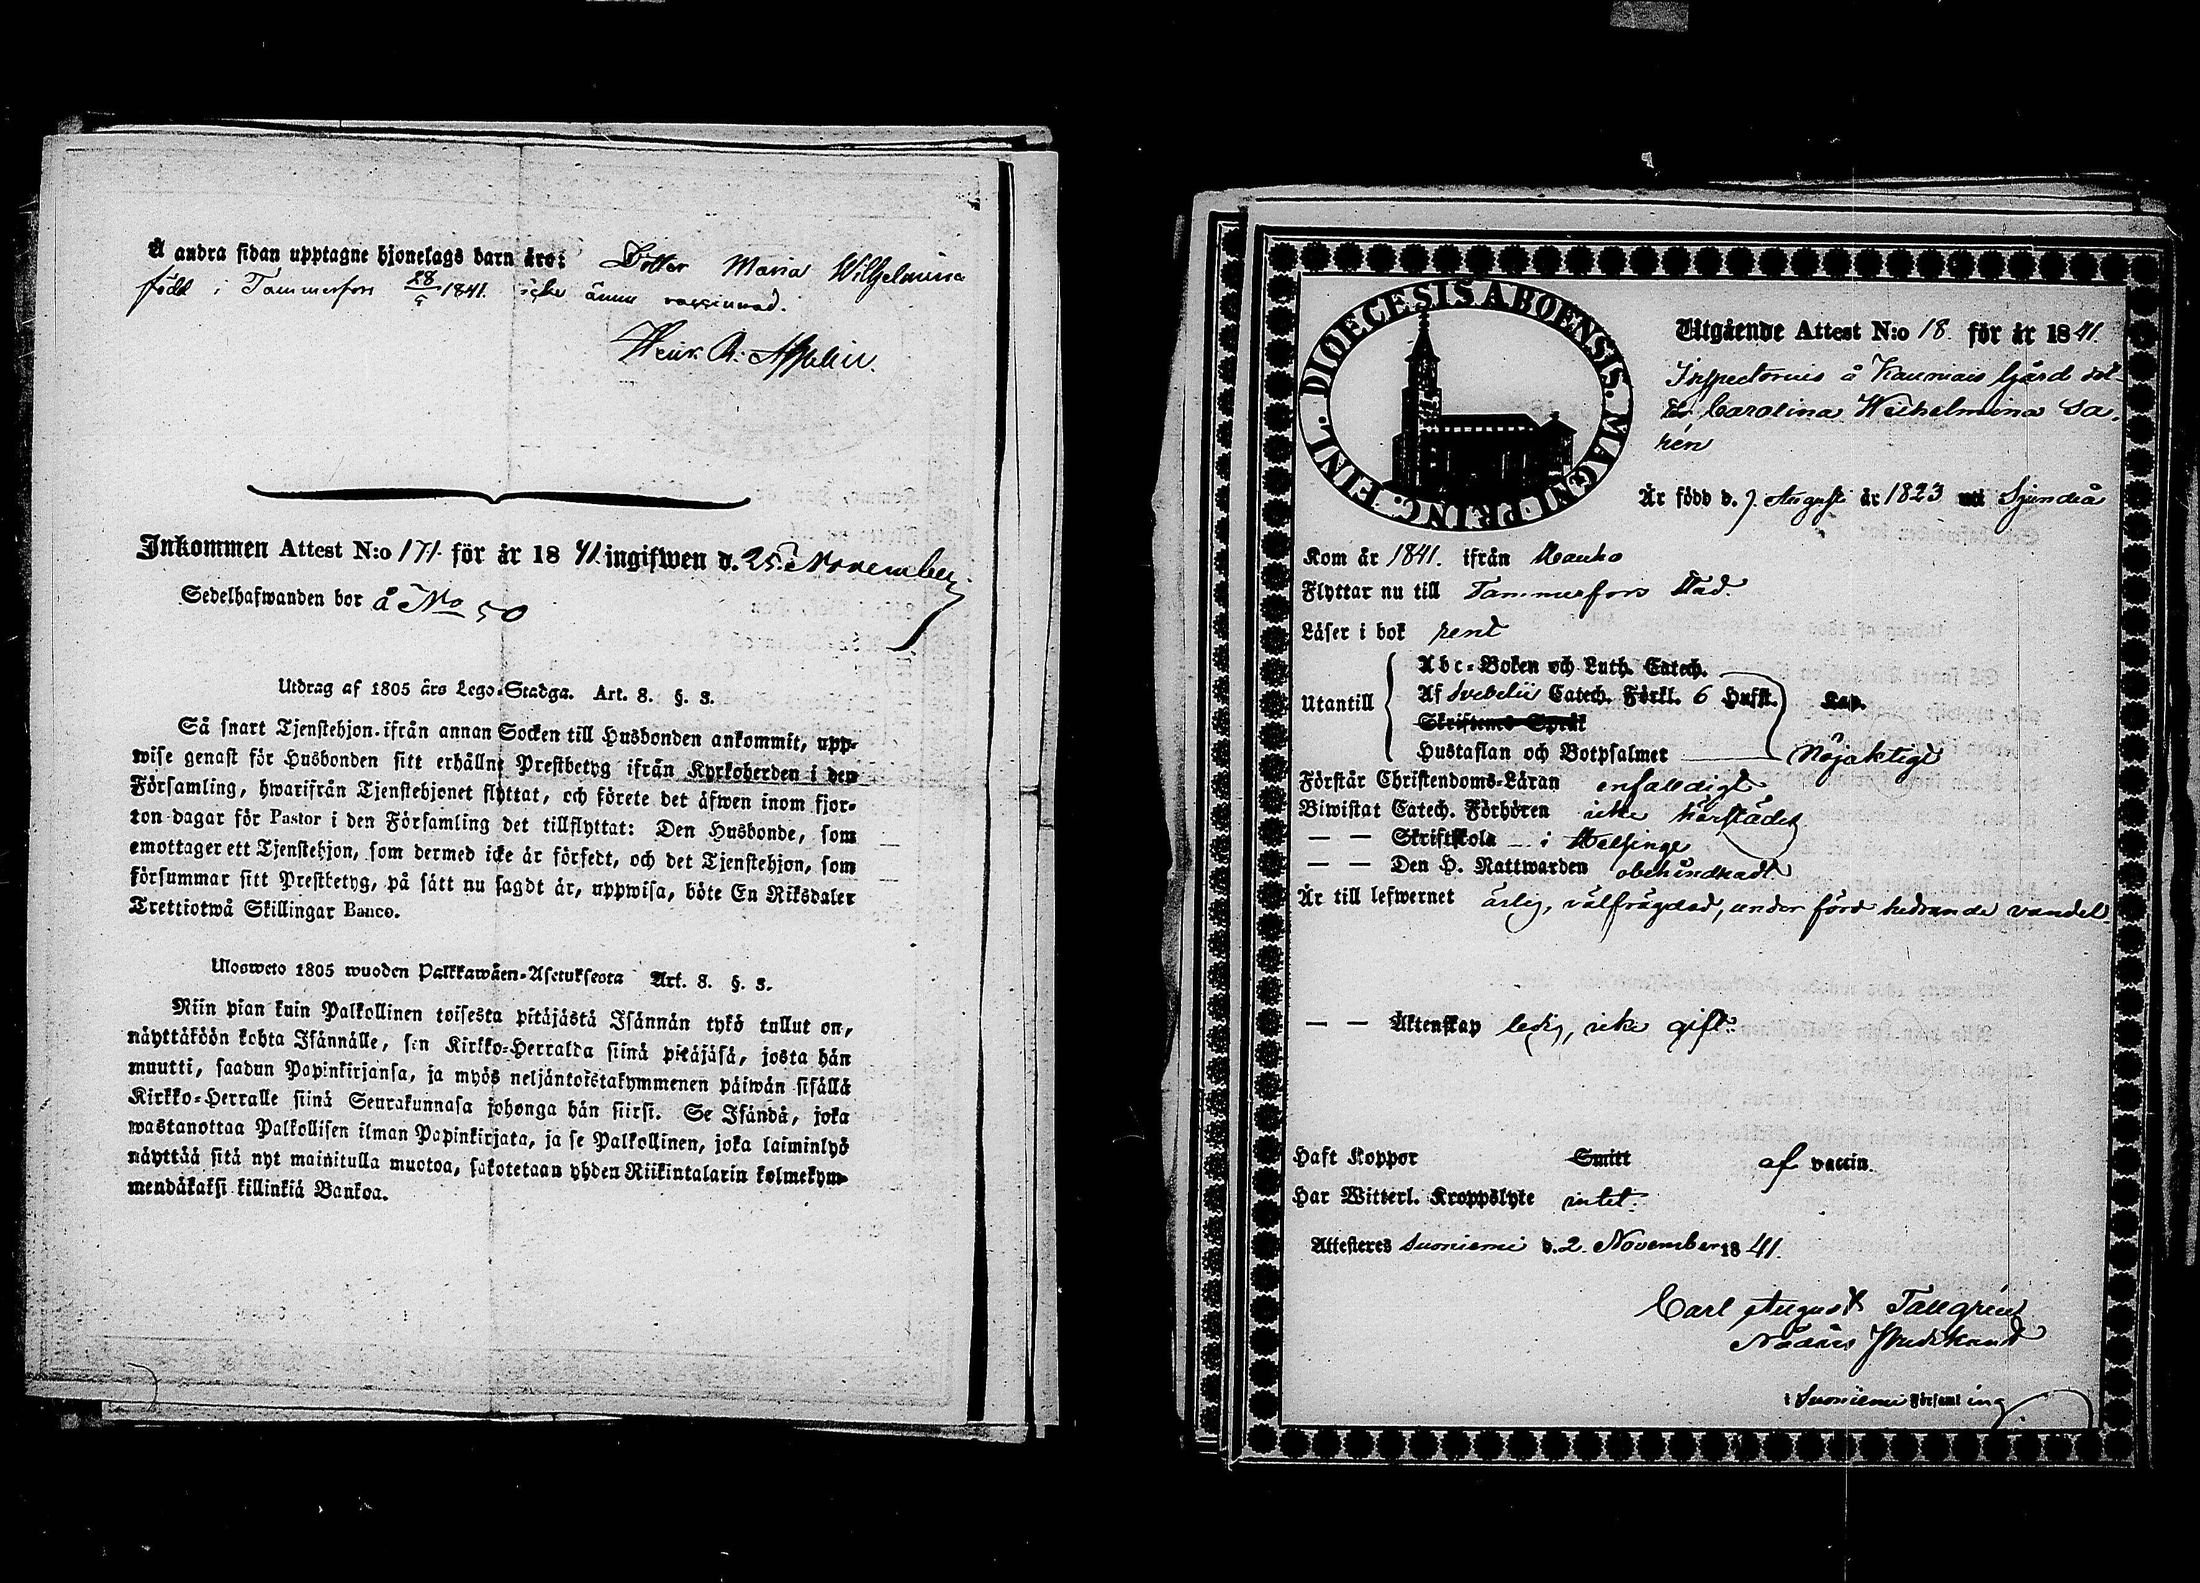 Å andra sidan upptagne hjonelags barn äro: Dotter Maria Wilhelmina
född i Tammerfors 28/5 1841. icke ännu vaccinerad.
Henr. R:
Inkommen Attest N:o 171. för år 1841. ingifwen d. 25. November
Sedelhafwanden bor å No 50
Utdrag af 1805 års Lego-Stadga. Art. 8. §. 3.
Så snart Tjenstehjon ifrån annan Socken till Husbonden ankommit, upp-
wise genast för Husbonden sitt erhållne Prestbetyg ifrån Kyrkoherden i den
Församling, hwarifrån Tjenstehjonet flyttat, och förete det äfwen inom fjor-
ton dagar för Pastor i den Församling det tillflyttat: Den Husbonde, som
emottager ett Tjenstehjon, som dermed icke är försedt, och det Tjenstehjon, som
försummar sitt Prestbetyg, på sätt nu sagdt är, uppwisa, böte En Riksdaler
Trettiotwå Skillingar Banco.
Ulosweto 1805 wuoden Palkkawäen-Asetuksesta Art. 8. §. 3.
Niin pian kuin Palkollinen toisesta pitäjästä Isännän tykö tullut on,
näyttäköön kohta Isännälle, sen Kirkko-Herralda siinä pitäjäsä, josta hän
muutti, saadun Papinkirjansa, ja myös neljäntoistakymmenen päiwän sisällä
Kirkko-Herralle siinä Seurakunnasa johonga hän siirsi. Se Isändä, joka
wastanottaa Palkollisen ilman Papinkirjata, ja se Palkollinen, joka laiminlyö
näyttää sitä nyt mainitulla muotoa, sakotetaan yhden Riikintalarin kolmekym-
mendäkaksi killinkiä Bankoa.
DIOECESIS ABOENSIS. MAGNI PRINC. FINL.
Utgående Attest N:o 18. för år 1841.
Inspectorns å Kauniais Gård dot-
ter Carolina Wilhelmina Sa-
rén
Är född d. 7. Augusti år 1823 uti Sjundeå
Kom år 1841. ifrån Kauko
Flyttar nu till Tammerfors Stad.
Läser i bok rent
Abc-Boken och Luth. Catech.
Utantill Af Svebelii Catech. Förkl. 6 Hufst. Kap.
Skriftenes Språk
Hustaflan och Botpsalmer Nöjaktigt
Förstår Christendoms-Läran enfalldigt
Biwistat Catech. Förhören icke härstädes
— — Skriftskola i Helsinge
— — Den H. Nattwarden obehindradt
Är till lefwernet ärlig, välfrägdad, under förd hedrande vandel.
— — Äktenskap ledig, icke gift.
Haft Koppor Smitt af vaccin.
Har Witterl. Kroppslyte intet.
Attesteras Suoniemi d. 2. November 1841.
Carl August Tallgrén
Nådårs Predikant
i Suoniemi Församling.